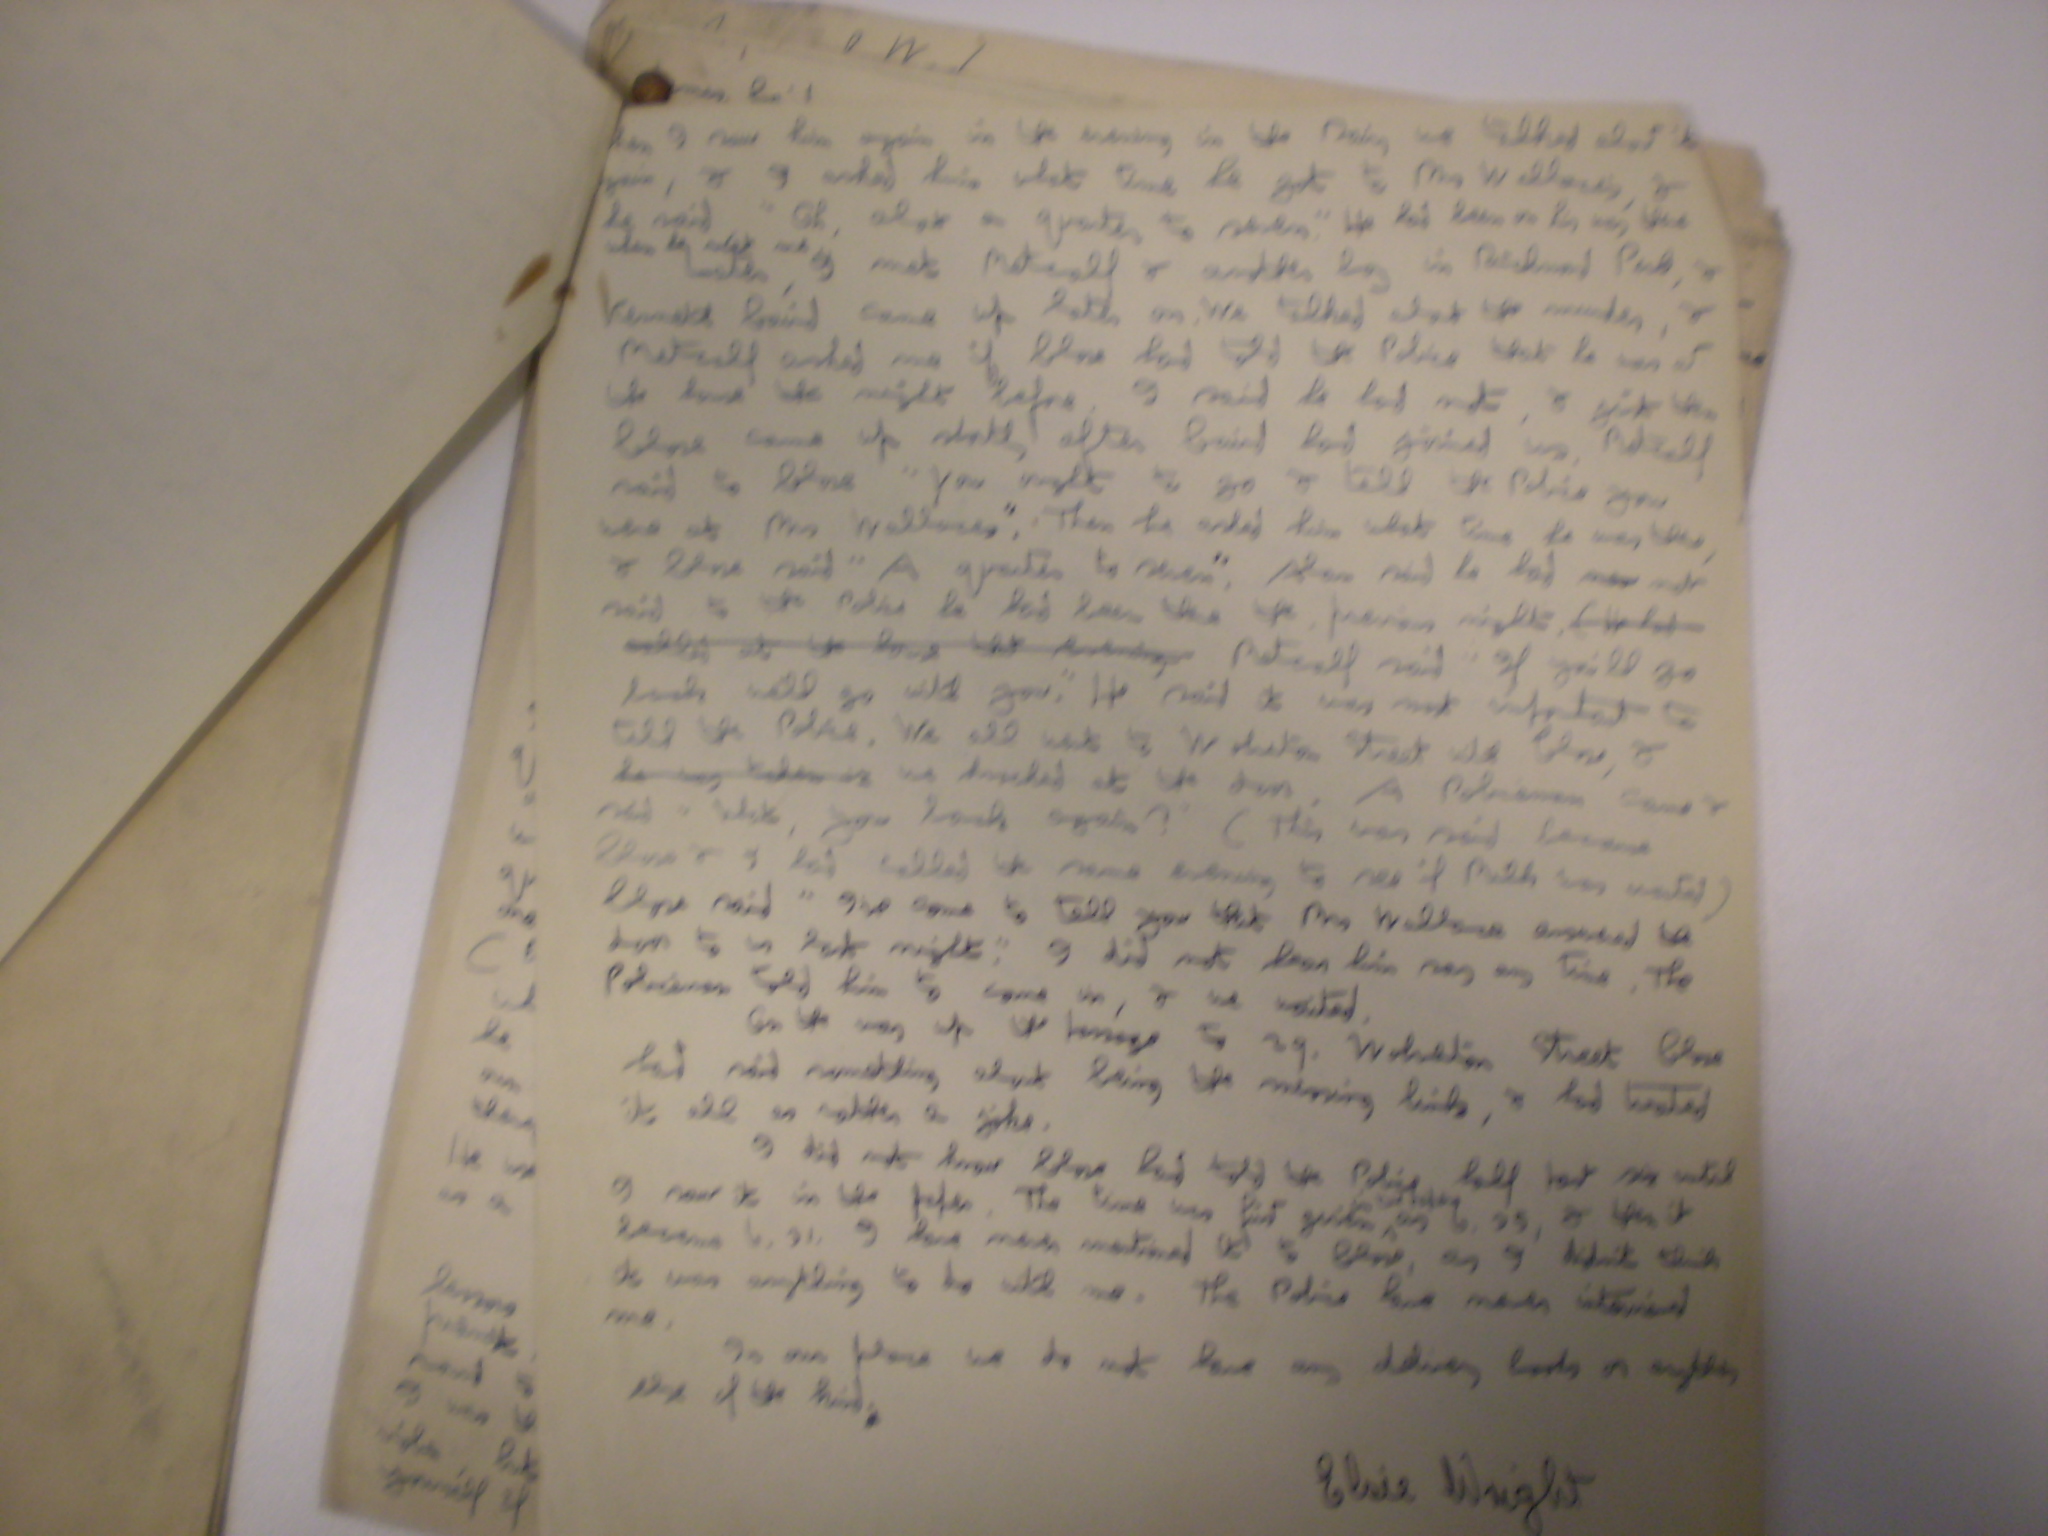 I saw him again in the evening in the Dairy we talked about it
again, & I asked him what time he got to Mrs Wallace's, &
he said "Oh, about a quarter to seven." He had been on his way there
when he met me
Later, I met Metcalf & another boy in Richmond Park, &
Kenneth Caird came up later on. We talked about the murder, &
Metcalf asked me if Close had told the Police that he was at
the house the night before. I said he had not, & just then
Close came up shortly after Caird had joined us. Metcalf
said to Close "You ought to go & tell the Police you
were at Mrs Wallaces". Then he asked him what time he was there,
& Close said "A quarter to seven". Alan said he had not
said to the Police he had been there the previous night. (He had
called at the house that evening Metcalf said "If you'll go
back we'll go with you." He said it was not important to
tell the Police. We all went to Wolverton Street with Close, &
we knocked at the door. A Policeman came &
said "What, you back again?" (This was said because
Close & I had called the same evening to see if Milk was wanted)
Close said "I've come to tell you that Mrs Wallace answered the
door to us last night." I did not hear him say any time. The
Policeman told him to come in, & we waited.
On the way up the passage to 29. Wolverton Street Close
had said something about being the missing link, & had treated
it all as rather a joke.
I did not know Close had told the Police half past six until
I saw it in the paper. The time was first given, as 6.35, & then it
became 6.31. I have never mentioned it to Close, as I didn't think
it was anything to do with me. The Police have never interviewed
me.
In our place we do not have any delivery books or anything
else of the kind.
Elsie Wright
he
He
I was
yourself if